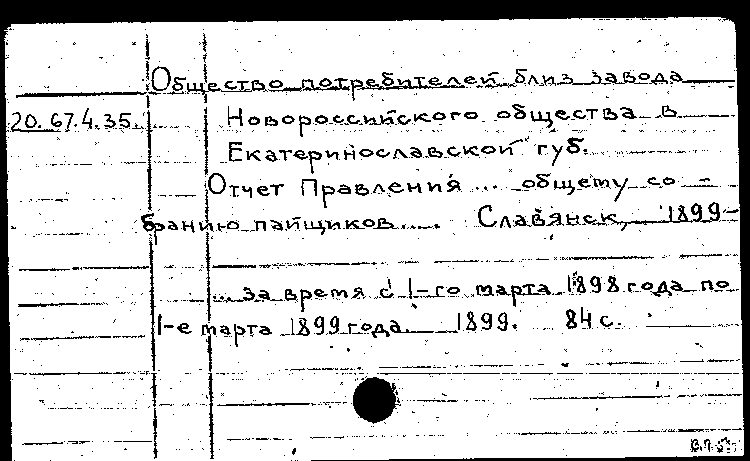 Общество потребителей близ завода
20.67.4.35. Новороссийского общества в
Екатеринославской губ.
Отчет Правления ... общему со-
бранию пайщиков.... Славянск, 1899-
... за время с 1-го марта 1898 года по
1-е марта 1899 года. 1899. 84 с.